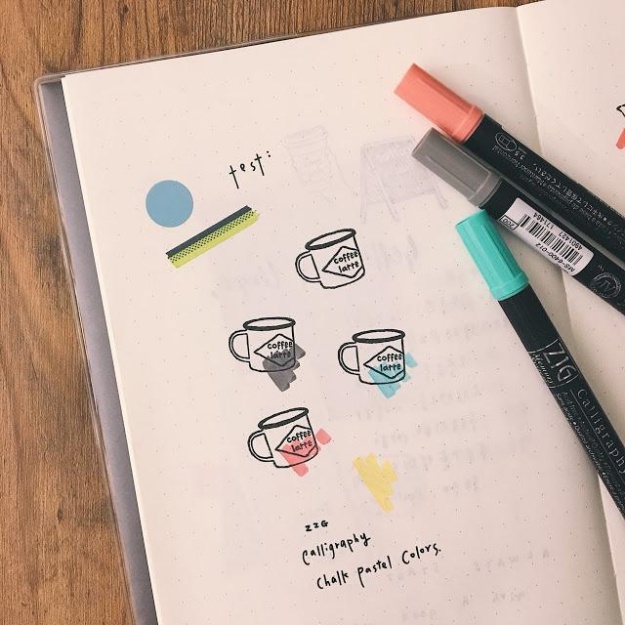 test:
coffee
latte
coffee
latte
coffee
latte
coffee
latte
ZIG
Calligraphy
chalk pastel colors.
ZIG
Calligraphy
4901427 171484